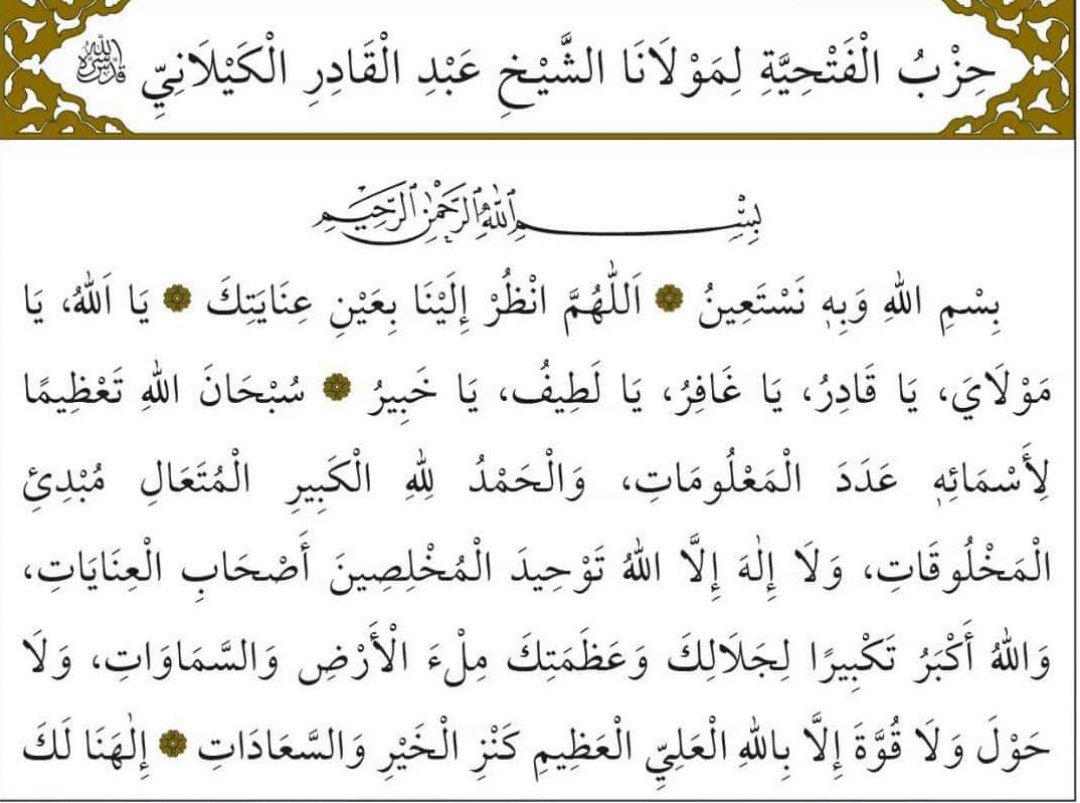 حِزْبُ الْفَتْحِيَّةِ لِمَوْلَانَا الشَّيْخِ عَبْدِ الْقَادِرِ الْكَيْلَانِيِّ قَدَّسَ اللهُ سِرَّهُ
بِسْمِ اللهِ الرَّحْمٰنِ الرَّحِيمِ
بِسْمِ اللهِ وَبِهٖ نَسْتَعِينُ ۞ اَللّٰهُمَّ انْظُرْ إِلَيْنَا بِعَيْنِ عِنَايَتِكَ ۞ يَا اَللهُ، يَا
مَوْلَايَ، يَا قَادِرُ، يَا غَافِرُ، يَا لَطِيفُ، يَا خَبِيرُ ۞ سُبْحَانَ اللهِ تَعْظِيمًا
لِأَسْمَائِهٖ عَدَدَ الْمَعْلُومَاتِ، وَالْحَمْدُ لِلهِ الْكَبِيرِ الْمُتَعَالِ مُبْدِئِ
الْمَخْلُوقَاتِ، وَلَا إِلٰهَ إِلَّا اللهُ تَوْحِيدَ الْمُخْلِصِينَ أَصْحَابِ الْعِنَايَاتِ،
وَاللهُ أَكْبَرُ تَكْبِيرًا لِجَلَالِكَ وَعَظَمَتِكَ مِلْءَ الْأَرْضِ وَالسَّمَاوَاتِ، وَلَا
حَوْلَ وَلَا قُوَّةَ إِلَّا بِاللهِ الْعَلِيِّ الْعَظِيمِ كَنْزِ الْخَيْرِ وَالسَّعَادَاتِ ۞ إِلٰهَنَا لَكَ